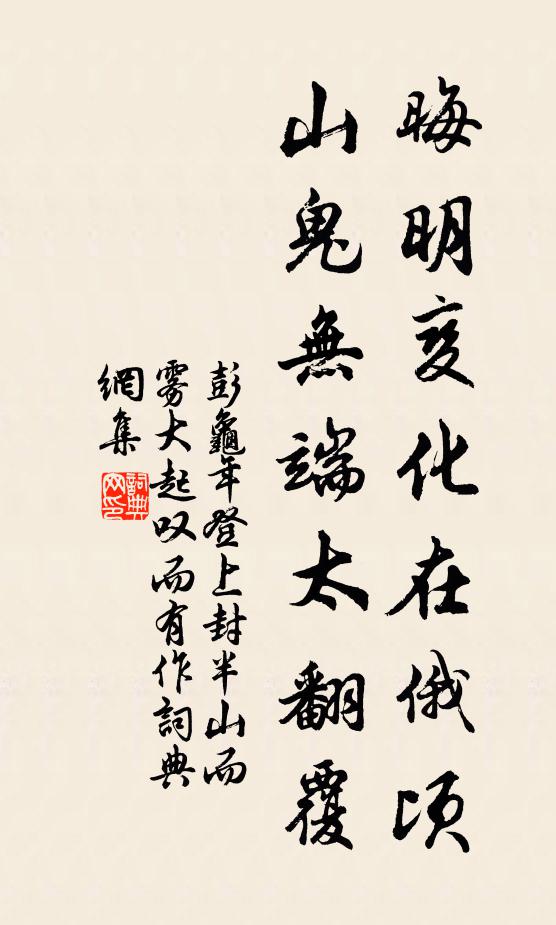 晦明变化在俄頃
山鬼無端太翻覆
彭龜年登上封半山而
雾大起叹而有作詞典
網集
詞典网印